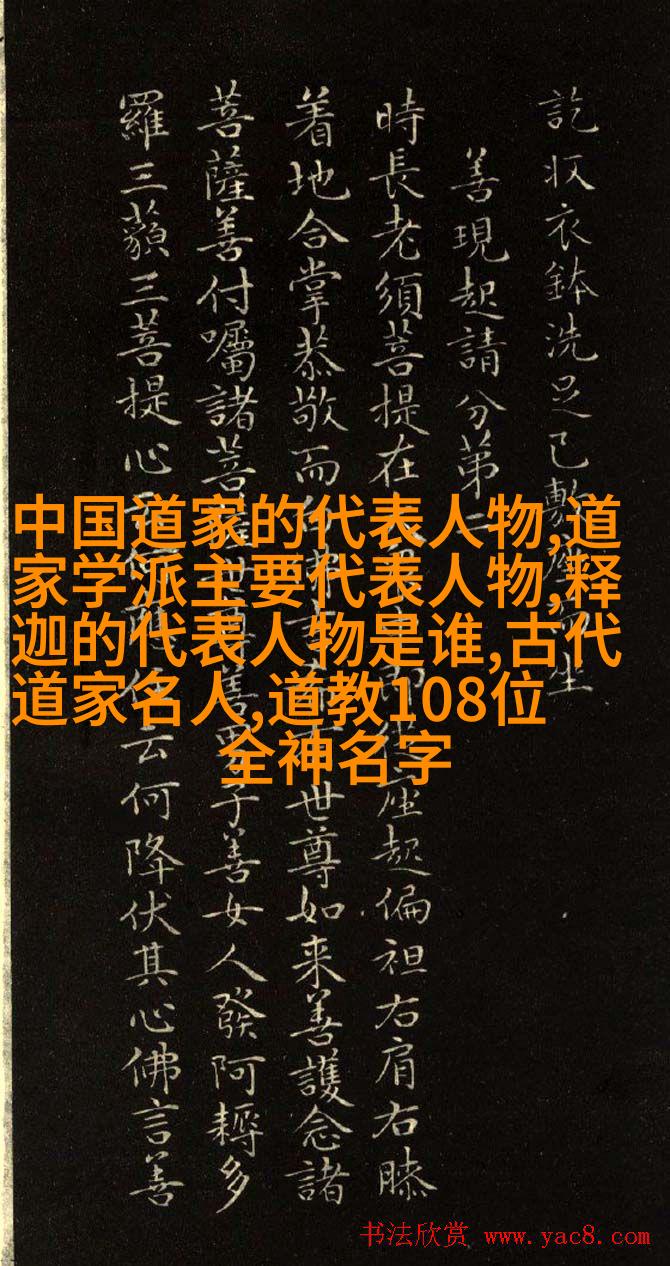 訖収衣鉢洗足已敷坐
善現起請分第
時長老須菩提在座起偏袒右肩右膝
着地合掌恭敬而世尊如来善護念諸
菩薩善付囑諸菩子善女人發阿耨多
羅三藐三菩提心云何降伏其心佛言善
中国道家的代表人物,道
家学派主要代表人物,释
迦的代表人物是谁,古代
道家名人,道教108位
全神名字
书法欣赏 www.yac8.com